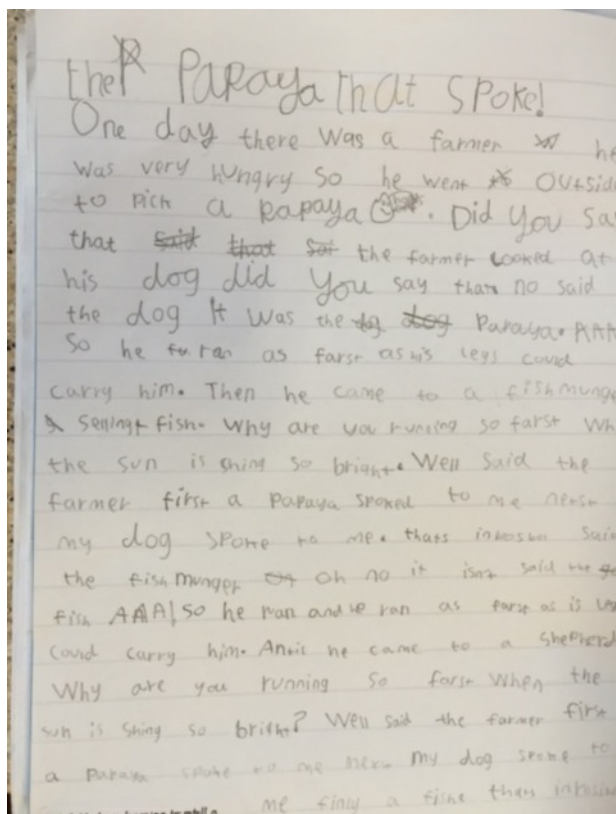 the Papaya that spoke!
One day there was a farmer he
was very hungry so he went outside
to pick a papaya. Did you sa
that said that sai the farmer looked at
his dog did you say that no said
the dog It was the dog papaya. AAA
so he ran as farst as his legs could
carry him. Then he came to a fishmunge
selling fish. Why are you running so farst wh
the sun is shing so bright. Well said the
farmer first a papaya spoked to me nerst
my dog spoke to me. thats said
the fishmunger oh no it isnt said the
fish AAA! so he ran and he ran as farst as is
could carry him. Antil he came to a shepherd
Why are you running so farst when the
sun is shing so bright? Well said the farmer first
a papaya spoke to me my dog spoke to
me finly a fishe thats